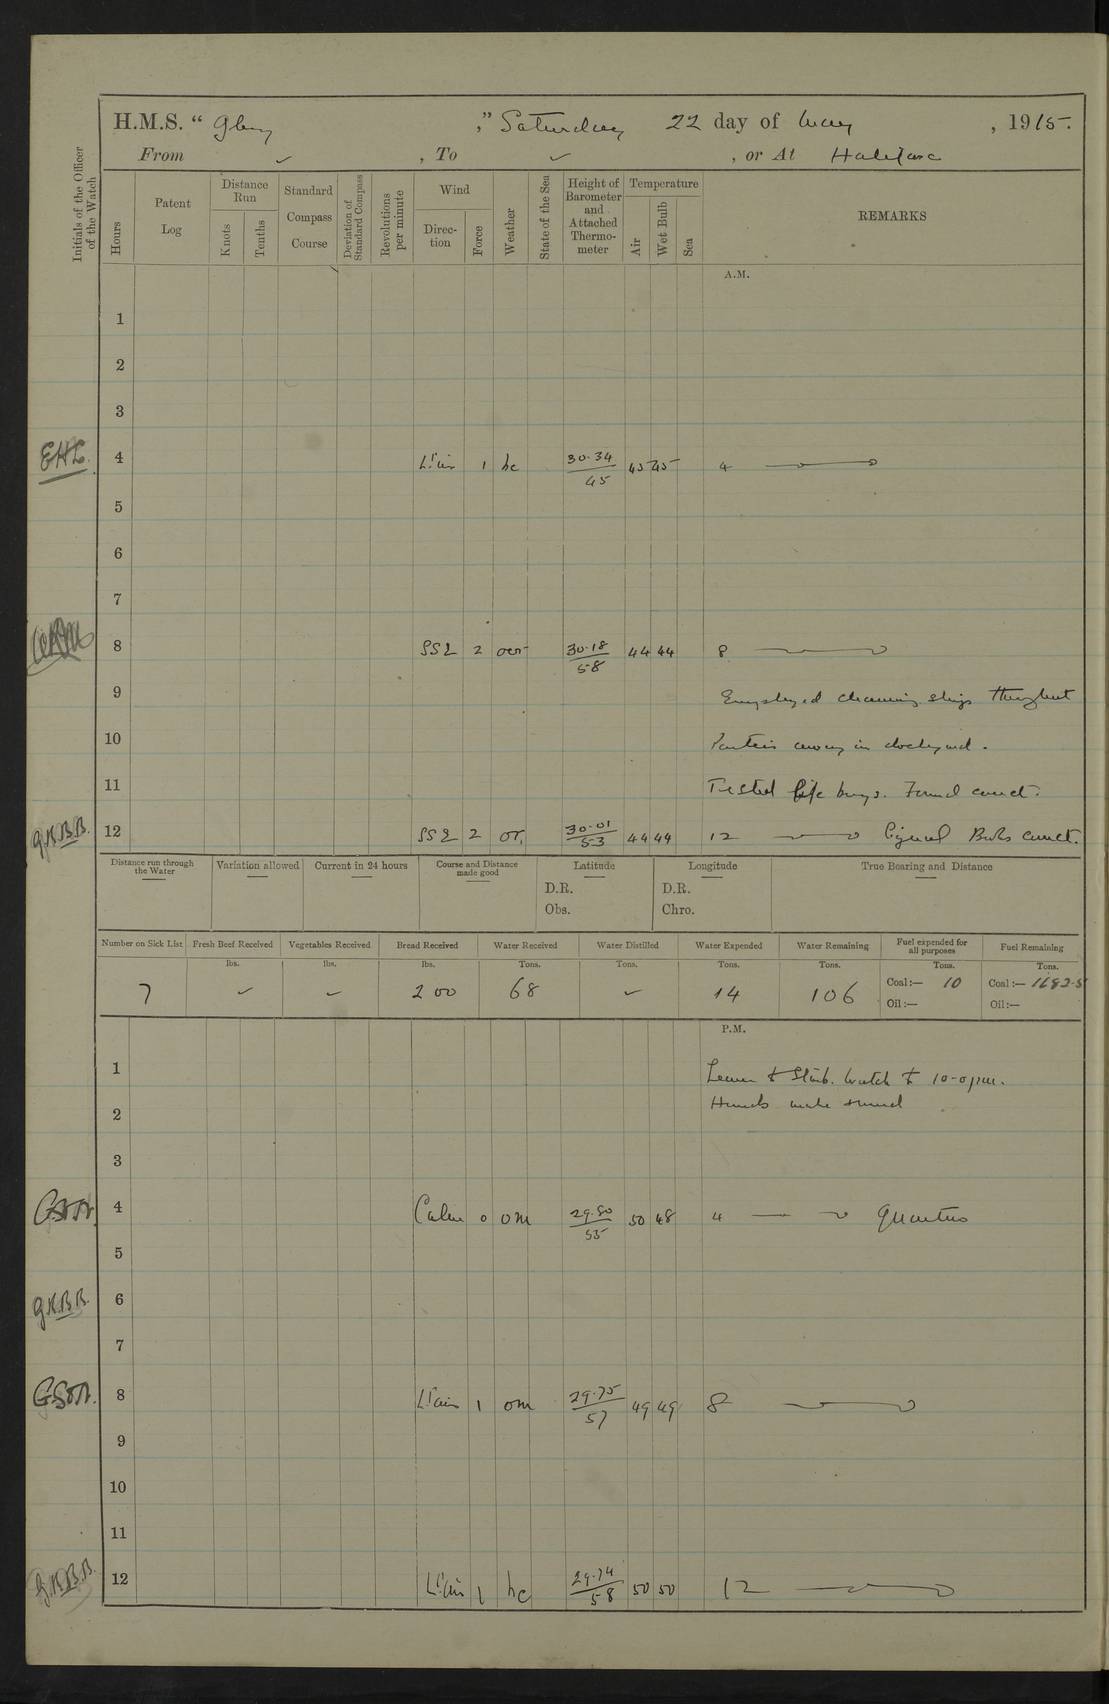 H.M.S. “ Glory ,” Saturday 22 day of May , 1915.
From ✓ , To ✓ , or At Halifax
Initials of the Officer of the Watch
Hours
Patent Log
Distance Run
Knots
Tenths
Standard Compass Course
Deviation of Standard Compass
Revolutions per minute
Wind
Direction
Force
Weather
State of the Sea
Height of Barometer and Attached Thermometer
Temperature
Air
Wet Bulb
Sea
REMARKS
A.M.
1
2
3
4 Lt airs 1 bc 30.34/45 45 45 4
5
6
7
8 SSE 2 30.18/58 44 44 8
9 Employed cleaning ship throughout
10 Parties away in dockyard.
11 Tested life buoys. Found correct.
G.H.B.B. 12 SSE 2 or. 30.01/53 44 44 12 Signal Books correct.
Distance run through the Water
Variation allowed
Current in 24 hours
Course and Distance made good
Latitude
D.R.
Obs.
Longitude
D.R.
Chro.
True Bearing and Distance
Number on Sick List
7
Fresh Beef Received
lbs.
✓
Vegetables Received
lbs.
✓
Bread Received
lbs.
200
Water Received
Tons.
68
Water Distilled
Tons.
✓
Water Expended
Tons.
14
Water Remaining
Tons.
106
Fuel expended for all purposes
Tons.
Coal :— 10
Oil :—
Fuel Remaining
Tons.
Coal :— 1682.5
Oil :—
P.M.
1 Leave to Starb. Watch to 10-0 pm.
2 Hands make & mend
3
4 Calm 0 om 29.80/55 50 48 4 Quarters
5
G.H.B.B. 6
7
8 Lt airs 1 om 29.75/57 49 49 8
9
10
11
G.H.B.B. 12 Lt airs 1 bc 29.74/58 50 50 12